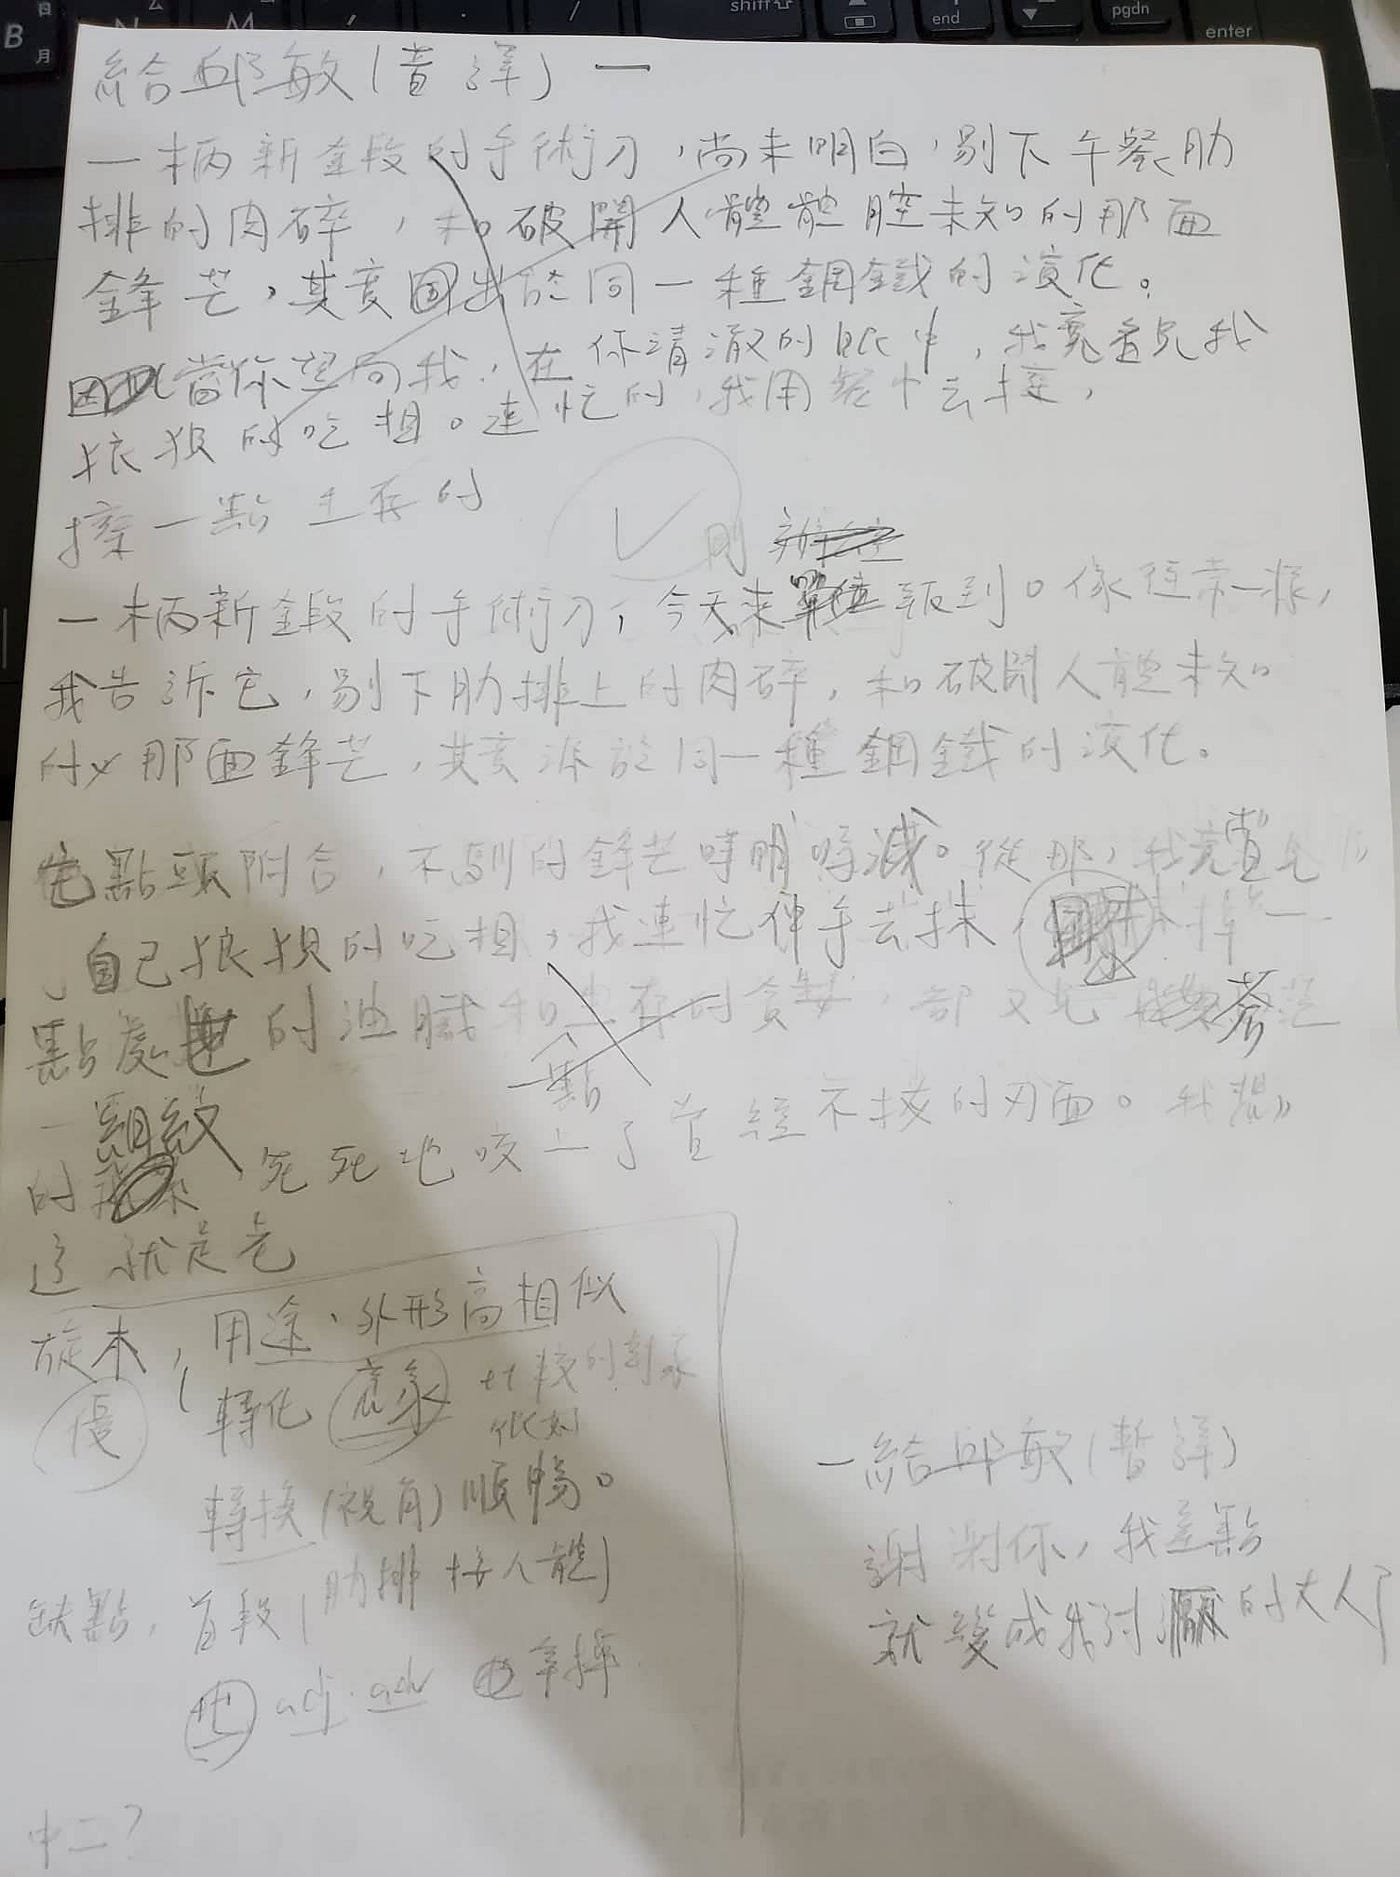 shift
end
pgdn
enter
B
月
給邱敏(暫譯) 一
一柄新鍛的手術刀,尚未明白,剔下午餐肋
排的肉碎,和破開人體體腔未知的那面
鋒芒,其實出於同一種鋼鐵的演化。
當你望向我,在你清澈的眼中,我竟看見我
狼狽的吃相。連忙的,我用餐巾去擦,
擦一點 生存的
剛
一柄新鍛的手術刀,今天來報到。像往常一樣,
我告訴它,剔下肋排上的肉碎,和破開人體未知
的那面鋒芒,其實源於同一種鋼鐵的演化。
它點頭附合,不馴的鋒芒時明時滅。從那,我竟看見
自己狼狽的吃相,我連忙伸手去抹,掉一
點處世的油膩和生存的貪婪,卻又見 蒼茫
一點
細紋
的 死死地咬上了曾經不接的刃面。我
這就是老
版本,用途、外形高相似
優 轉化 意象 比較的對象
很好
轉換(視角)順暢。
缺點,首段(肋排接人體)
的 adj. adv 拿掉
中二?
一給邱敏(暫譯)
謝謝你,我差點
就變成我討厭的大人了